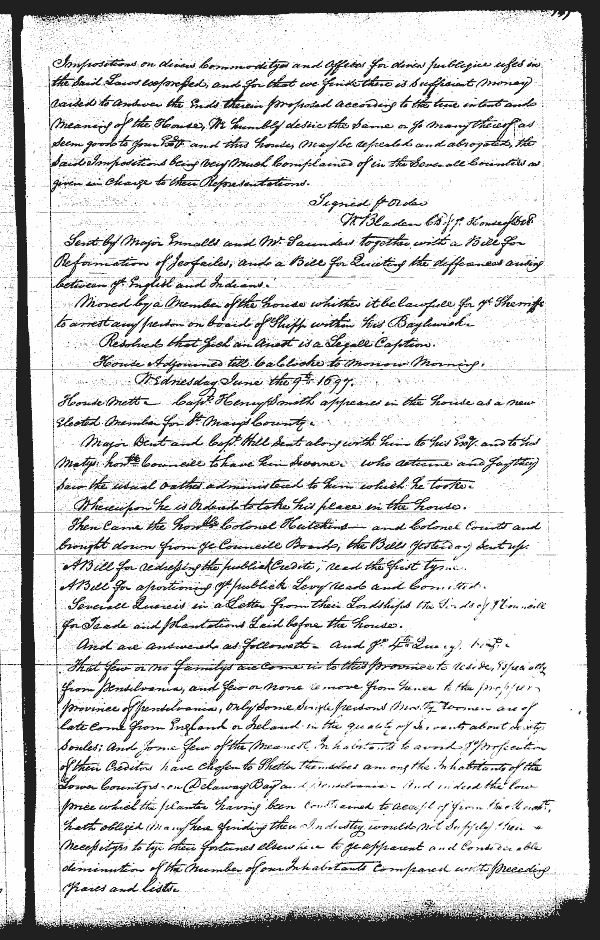 Impositions on divers Commoditys and Effects for divers publique uses in
the said Laws expressed, and for that we finde there is sufficient money
raised to answer the Ends therein proposed according to the true intent and
meaning of the House, We humbly desire the same or so many thereof as
seem good to your Exy. and this house, may be repealed and abrogated, the
said Impositions being very much Complained of in the Severall Counties as
given in Charge to their Representations.
Signed p order
W Bladen Clk of ye House of Del
Sent by Major Ennalls and Mr. Saunders together with a Bill for
Reformation of Jeofailes, and a Bill for Quieting the differences arising
between ye English and Indians.
Moved by a Member of the house whither it be lawfull for ye Sherriffe
to arrest any person on board of Shipp within his Baylywick.
Resolved that such an Arrest is a Legall Caption.
House Adjourned till Clocke to morrow Morning.
Wednesday June the 9th 1697.
House mett. Capt. Henry Smith appears in the house as a new
Elected Member for St. Marys County.
Major Dent and Capt. Hill sent along with him to his Exy. and to his
Matys. honble Councill to have him Sworne. who returne and say they
saw the usual oathes administered to him which he tooke.
Whereupon he is Ordered to take his place in the house.
Then came the honble Colonel Hutchins and Colonel Courts and
brought down from ye Councill Board, the Bills Yesterday sent up.
A Bill for redressing the publick Credite, read the first tyme.
A Bill for aportioning ye publick Levy read and Comitted.
Severall Queries in a Letter from their Lordships the Lords of ye Councill
for Trade and plantations Laid before the house.
And are answered as followeth. And ye 4th Query.
That few or no familys are come into this Province to reside, Especially
from pensilvania, and few or none remove from hence to the
province of pensilvania, only some single persons women are of
late come from England or Ireland in the quality of Servants about sixty
soules; And some few of the meanest Inhabitants to avoid ye prosecution
of their Creditors have chosen to shelter themselves among the Inhabitants of the
Lower Countys on Delaway Bay and pensilvania. And indeed the low
price which the planter having been constrained to accept of from the
hath obliged many here finding their Industry would not supply their
Necessitys to try their fortunes elsewhere to ye apparent and Considerable
diminution of the Number of our Inhabitants compared with preceeding
Yeares and lists.